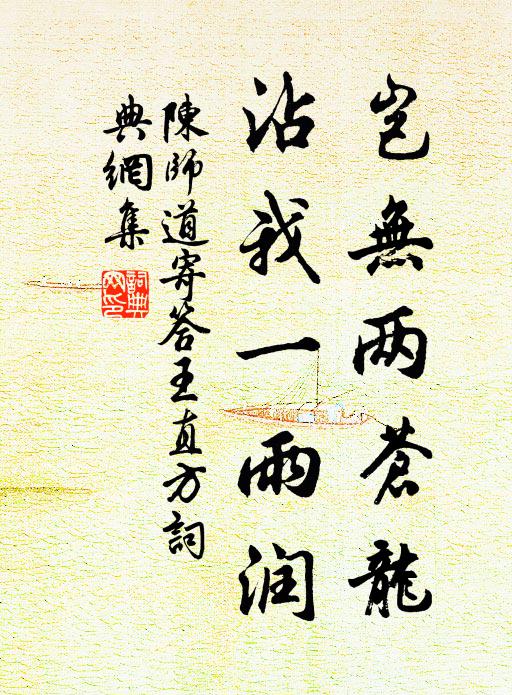 岂無两蒼龍
沾我一雨润
陳師道寄答王直方詞
典網集
詞典
网印